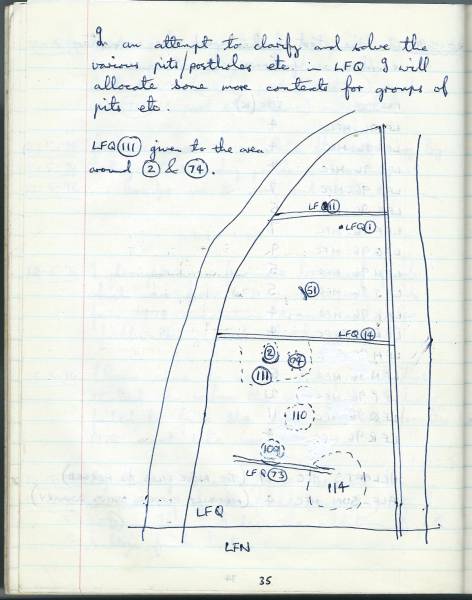 In an attempt to clarify and solve the
various pits/postholes etc in LFQ I will
allocate some more contexts for groups of
pits etc.
LFQ 111 given to the area
around 2 & 74.
LFQ 11
LFQ 1
51
LFQ 14
2
74
111
110
109
LFQ 73
114
LFQ
LFN
35